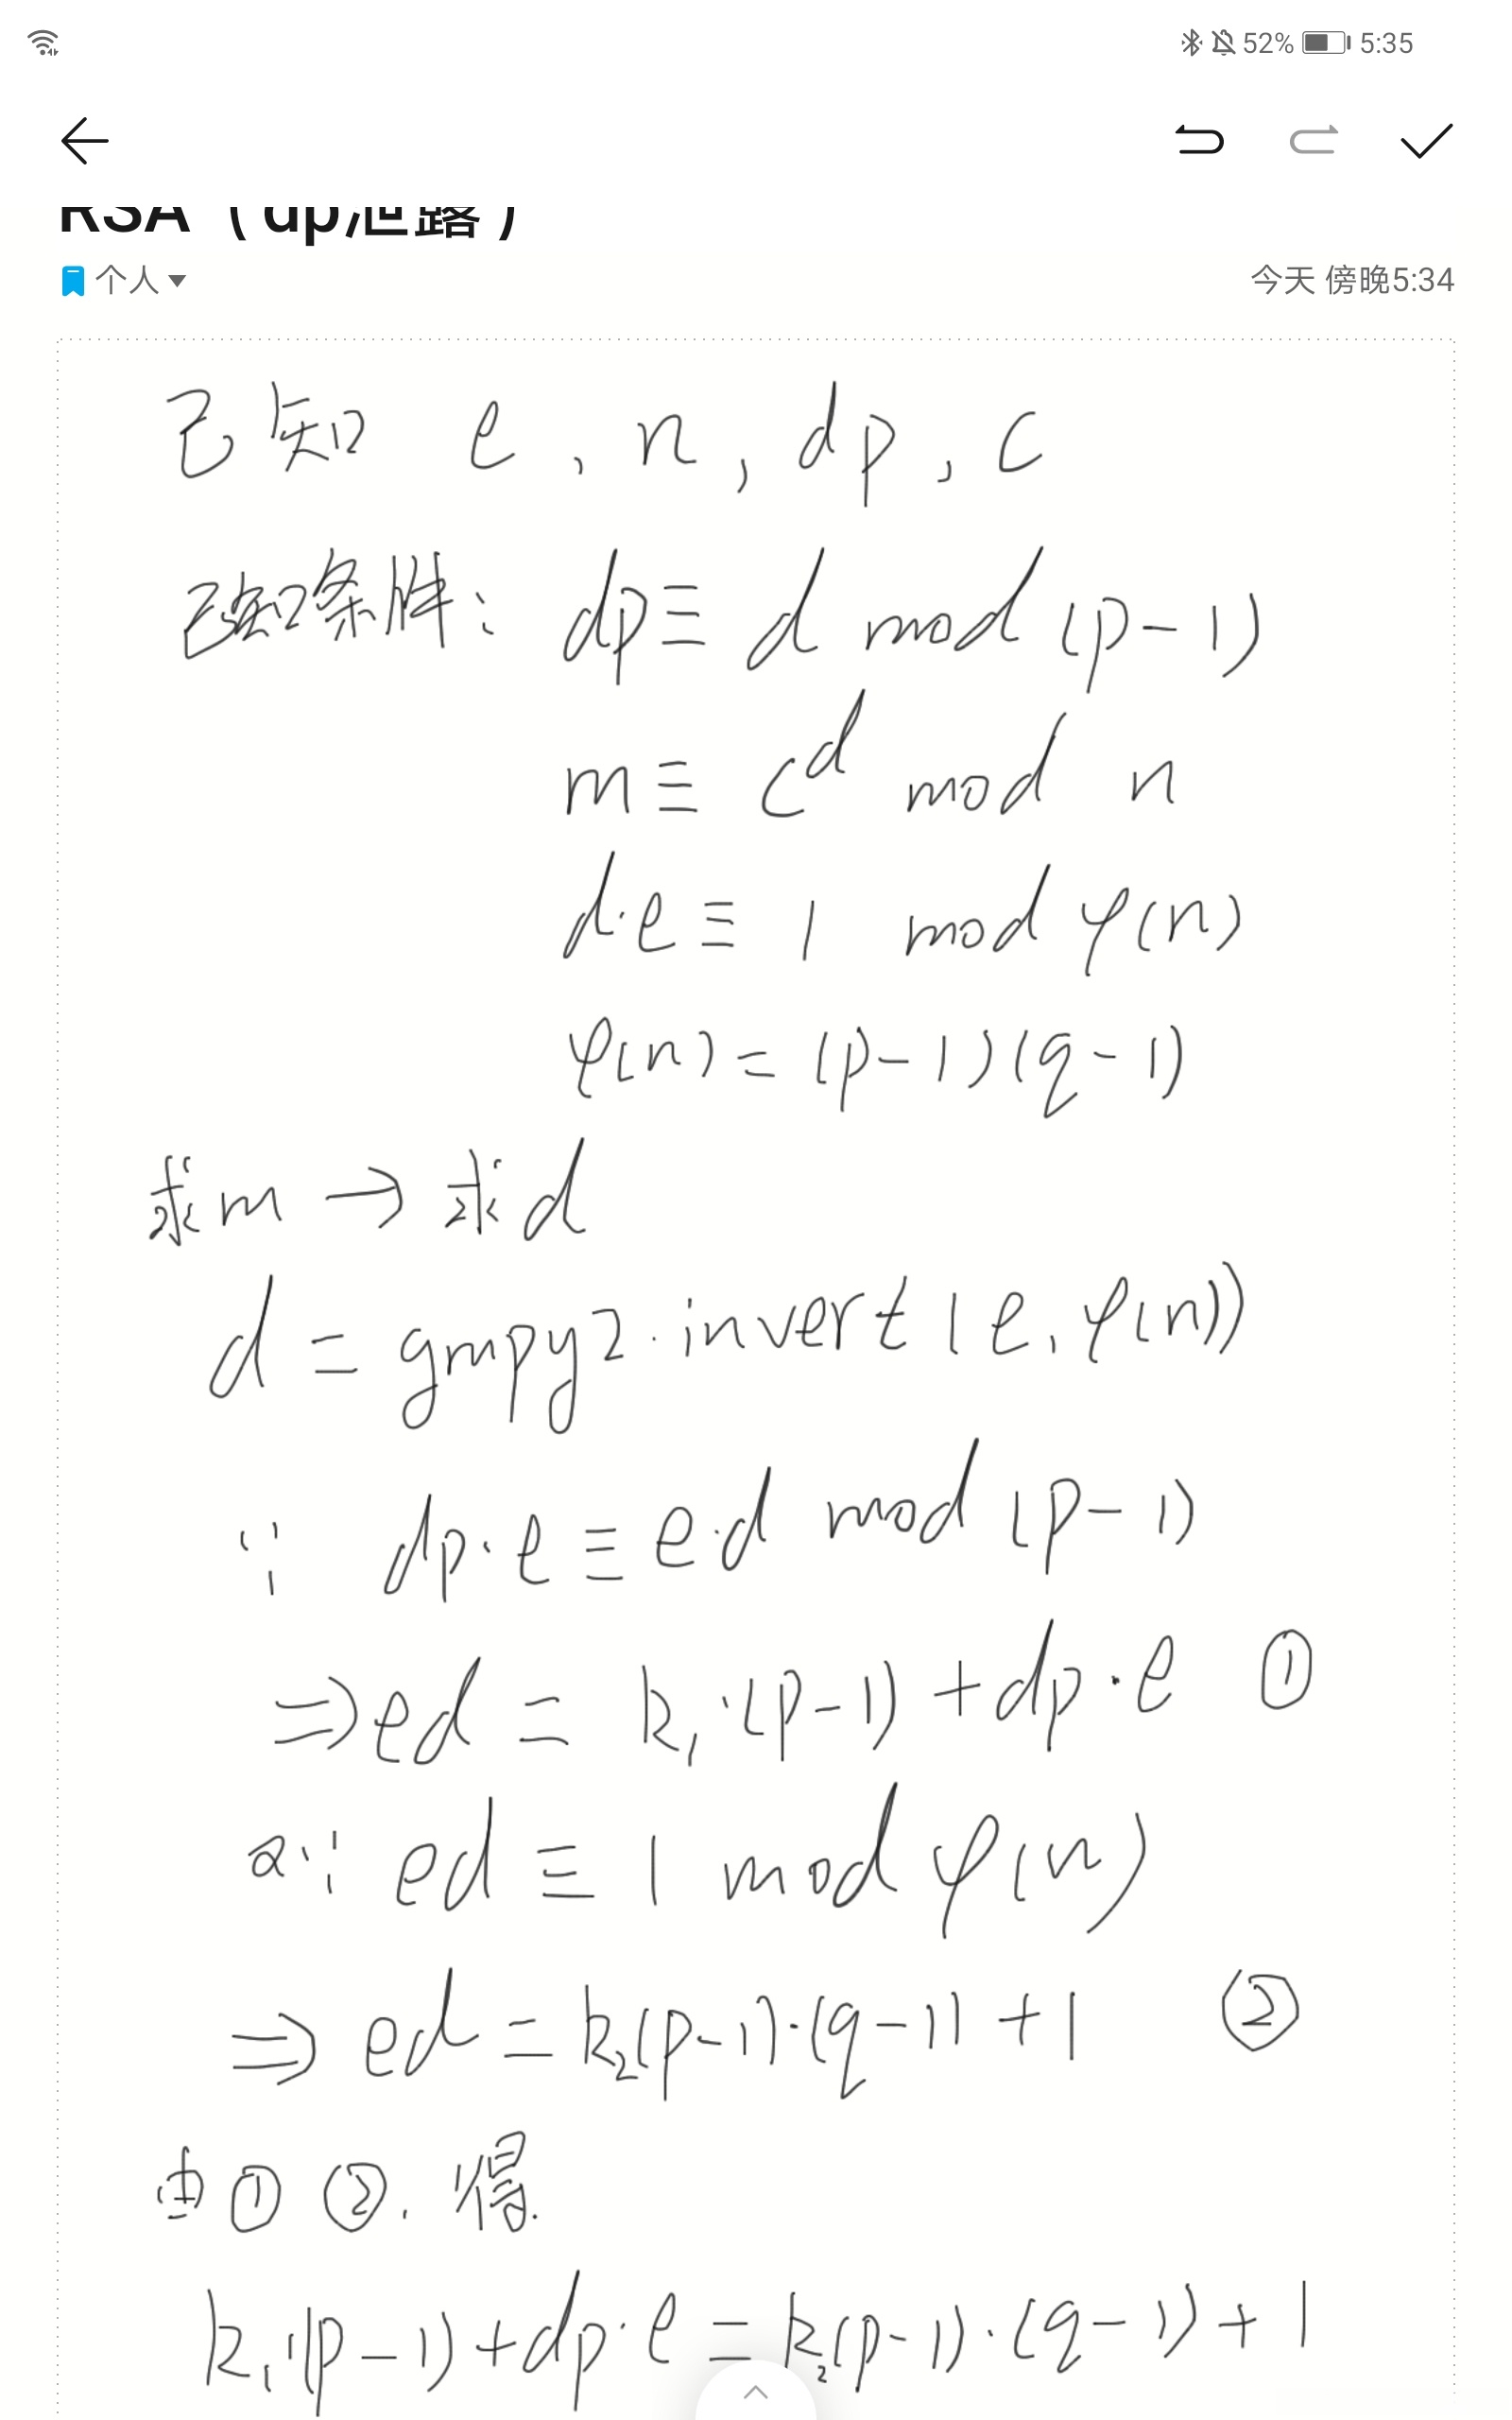 52% 5:35
RSA（dp泄露）
个人 今天 傍晚5:34
已知 e , n , dp , c
已知条件: dp≡ d mod (p-1)
m ≡ c^d mod n
d·e ≡ 1 mod φ(n)
φ(n) = (p-1)(q-1)
求m → 求d
d = gmpy2.invert(e,φ(n))
∵ dp·e ≡ e·d mod (p-1)
⇒ed = k₁·(p-1)+dp·e ①
又∵ ed ≡ 1 mod φ(n)
⇒ ed = k₂(p-1)·(q-1)+1 ②
由①②,得.
k₁·(p-1)+dp·e = k₂(p-1)·(q-1)+1